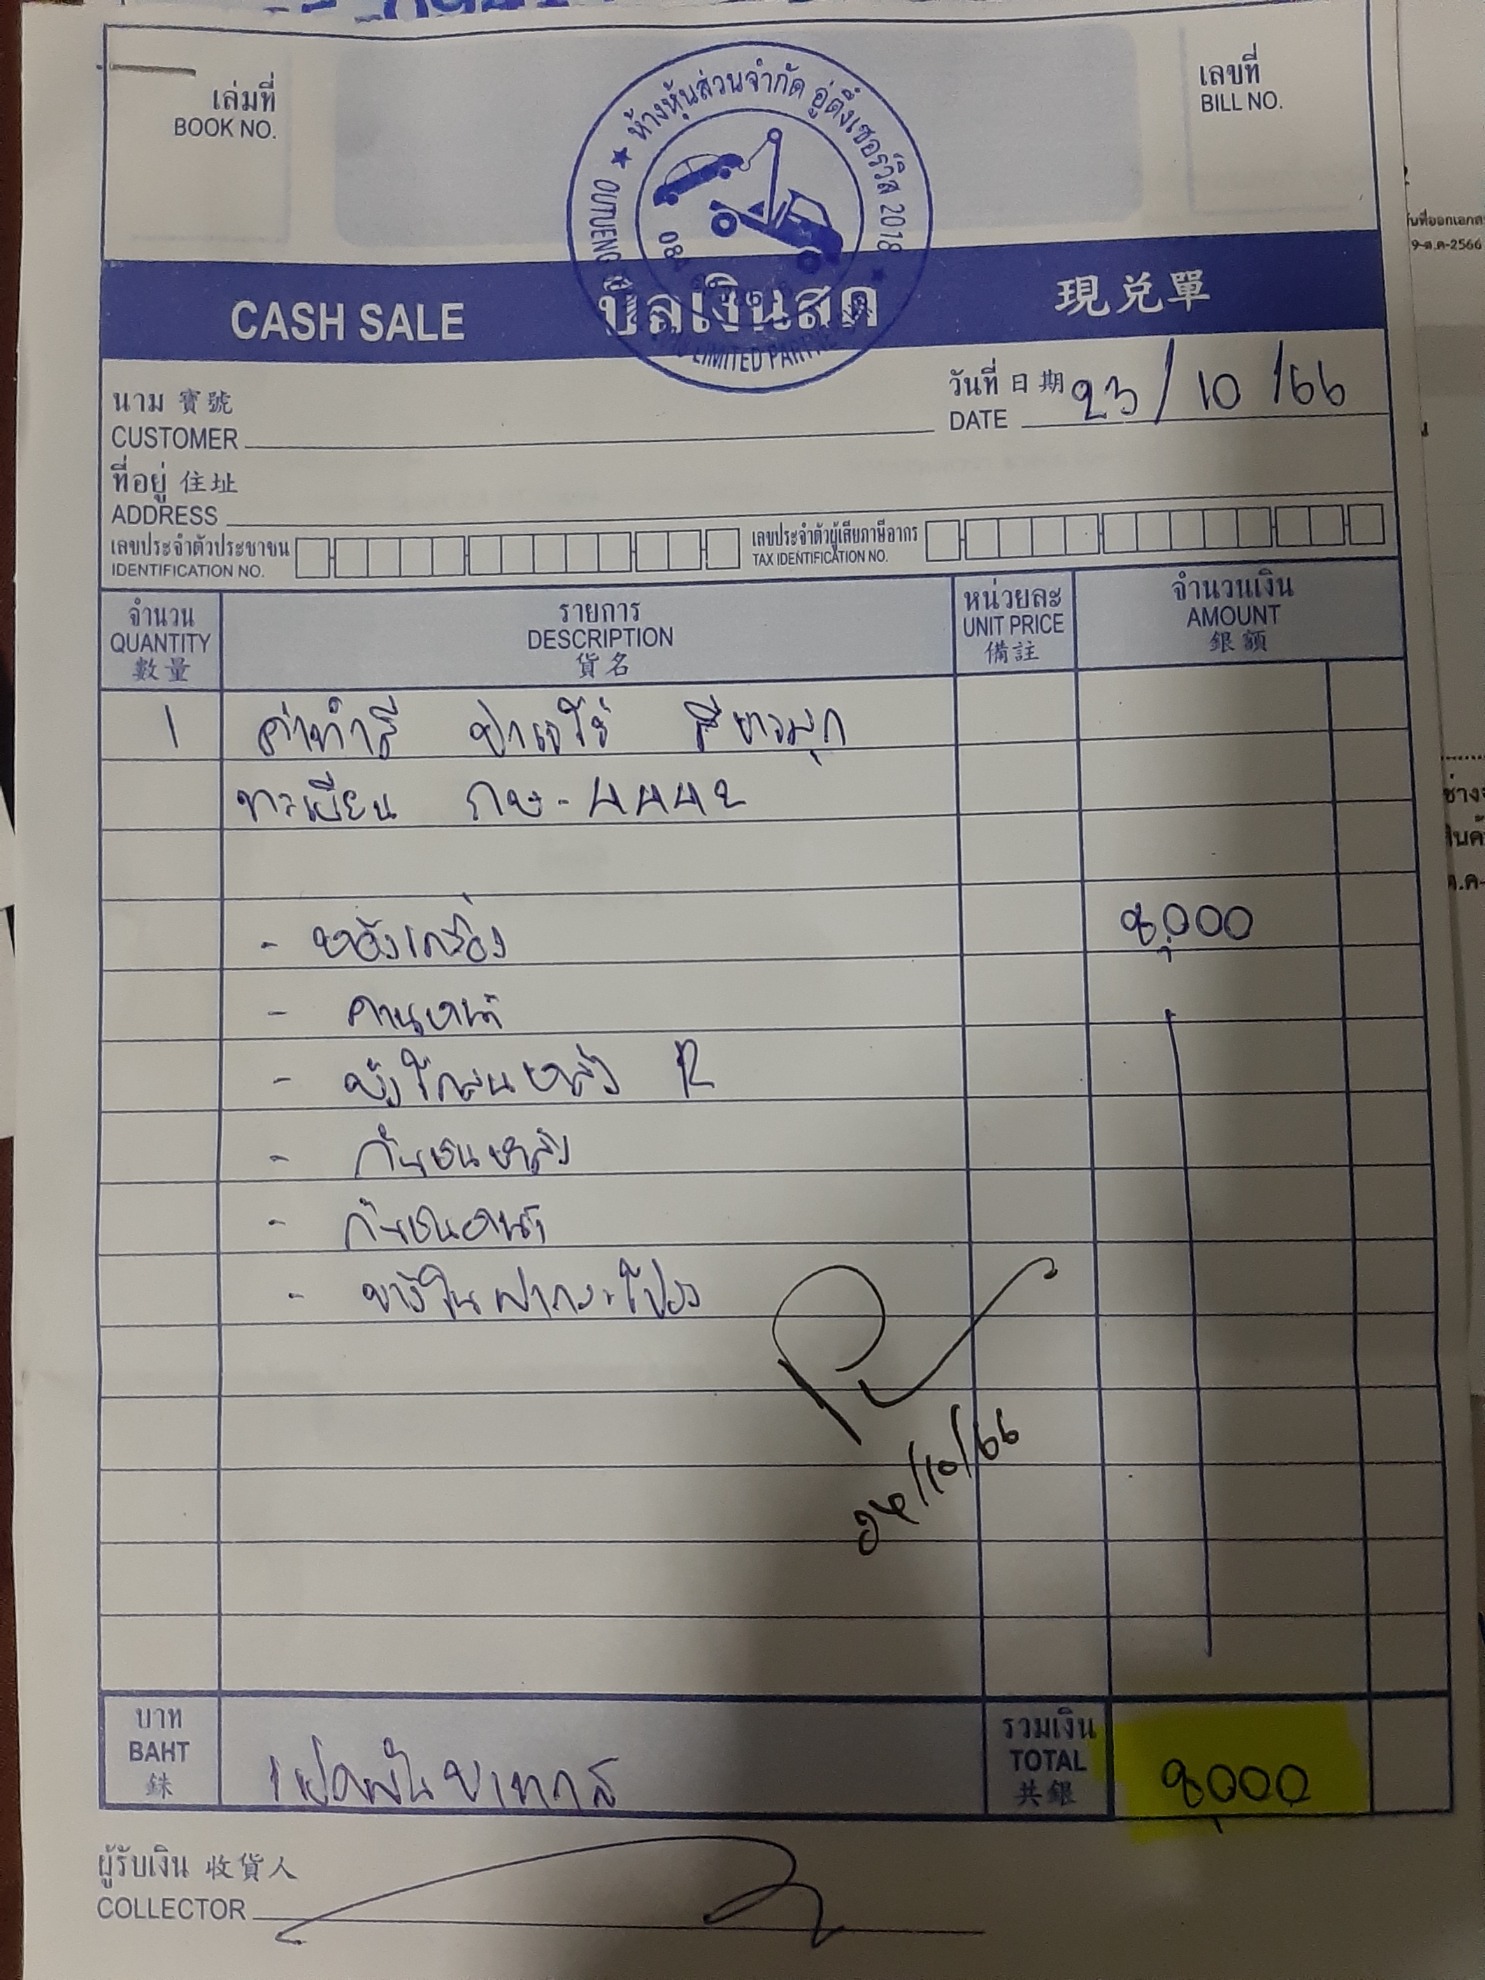 เล่มที่
BOOK NO.
เลขที่
BILL NO.
ห้างหุ้นส่วนจำกัด อู่ตึ๋งเซอร์วิส 2018
OUTUENG
080
LIMITED
CASH SALE บิลเงินสด 現兑單
นาม 寶號
CUSTOMER
วันที่ 日期
DATE 23/10/66
ที่อยู่ 住址
ADDRESS
เลขประจำตัวประชาชน
IDENTIFICATION NO.
เลขประจำตัวผู้เสียภาษีอากร
TAX IDENTIFICATION NO.
จำนวน
QUANTITY
數量
รายการ
DESCRIPTION
貨名
หน่วยละ
UNIT PRICE
備註
จำนวนเงิน
AMOUNT
銀額
1 ค่าทำสี ปาเจโร่ สีขาวมุก
ทะเบียน กษ-4442
- ห้องเครื่อง 8,000
- คานหน้า
- บังโคลนหลัง R
- กันชนหลัง
- กันชนหน้า
- ข้างในฝากระโปรง
24/10/66
บาท
BAHT
銖
แปดพันบาท
รวมเงิน
TOTAL
共銀
8,000
ผู้รับเงิน 收貨人
COLLECTOR
9-ต.ค-2566